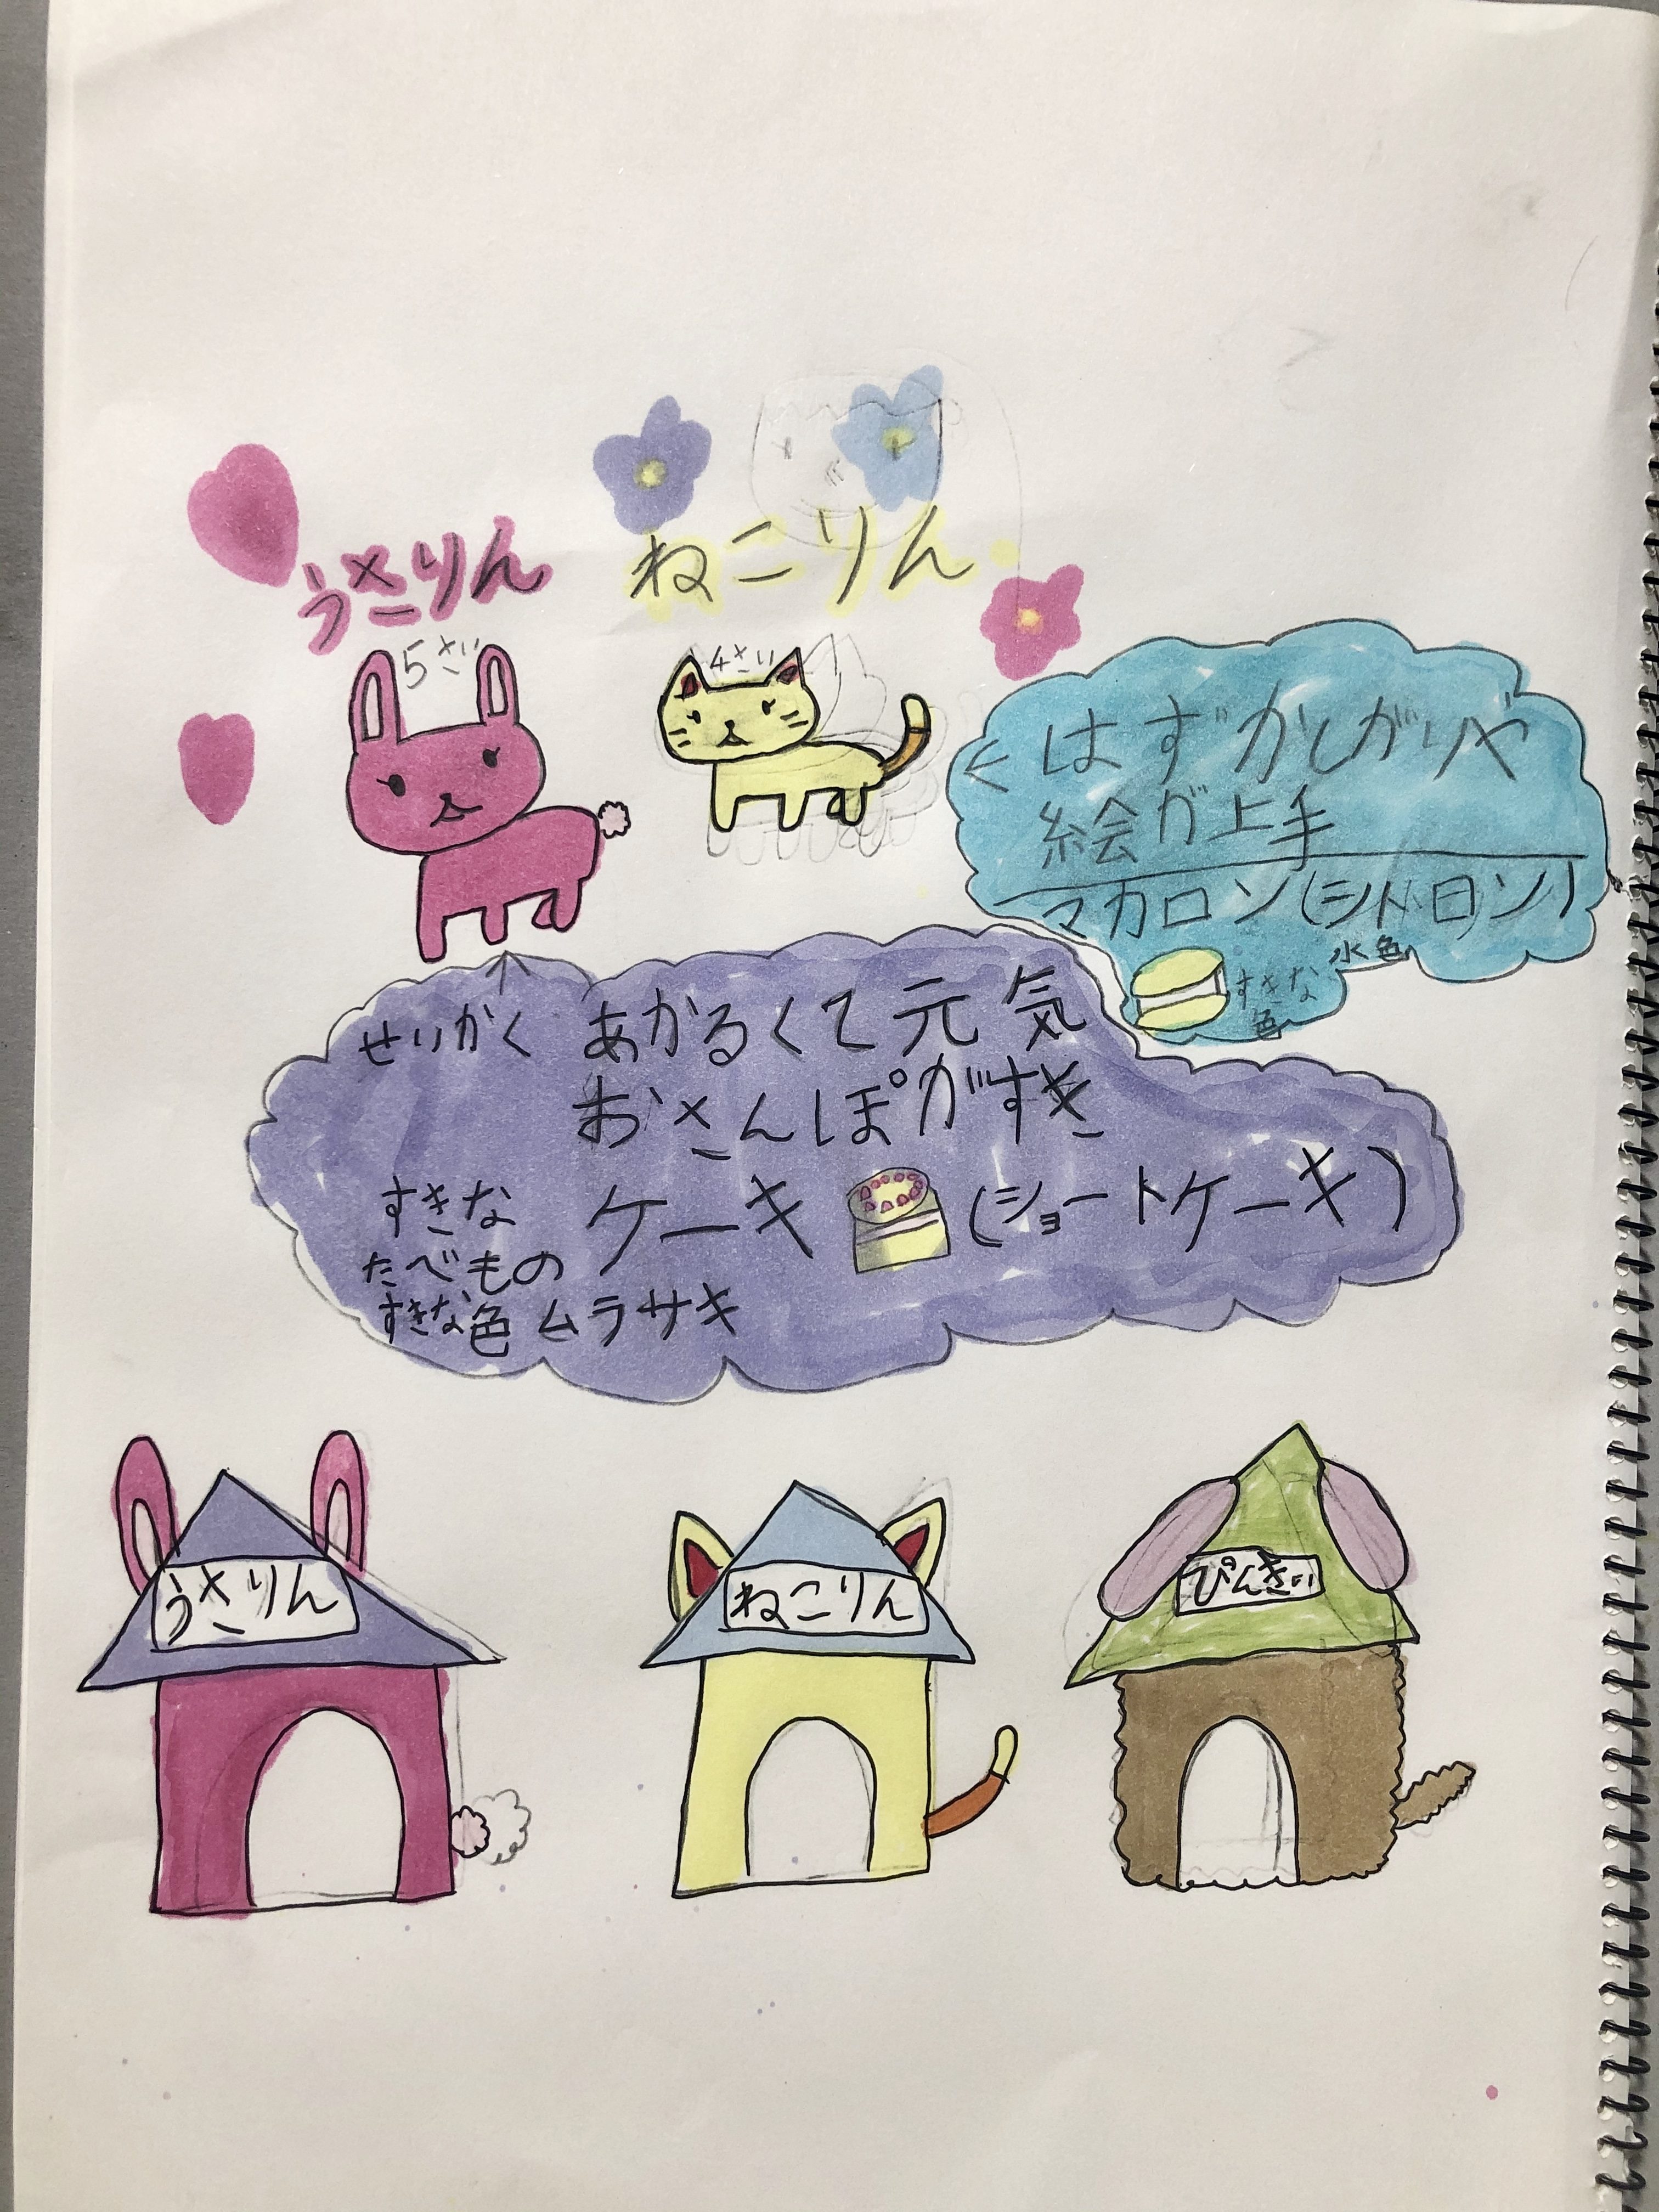 うさりん
ねこりん
5さい
4さい
←はずかしがりや
絵が上手
マカロン(シトロン)
水色
すきな
色
せいかく あかるくて元気
おさんぽがすき
すきな ケーキ (ショートケーキ)
たべもの
すきな色 ムラサキ
うさりん
ねこりん
ぴんきぃ